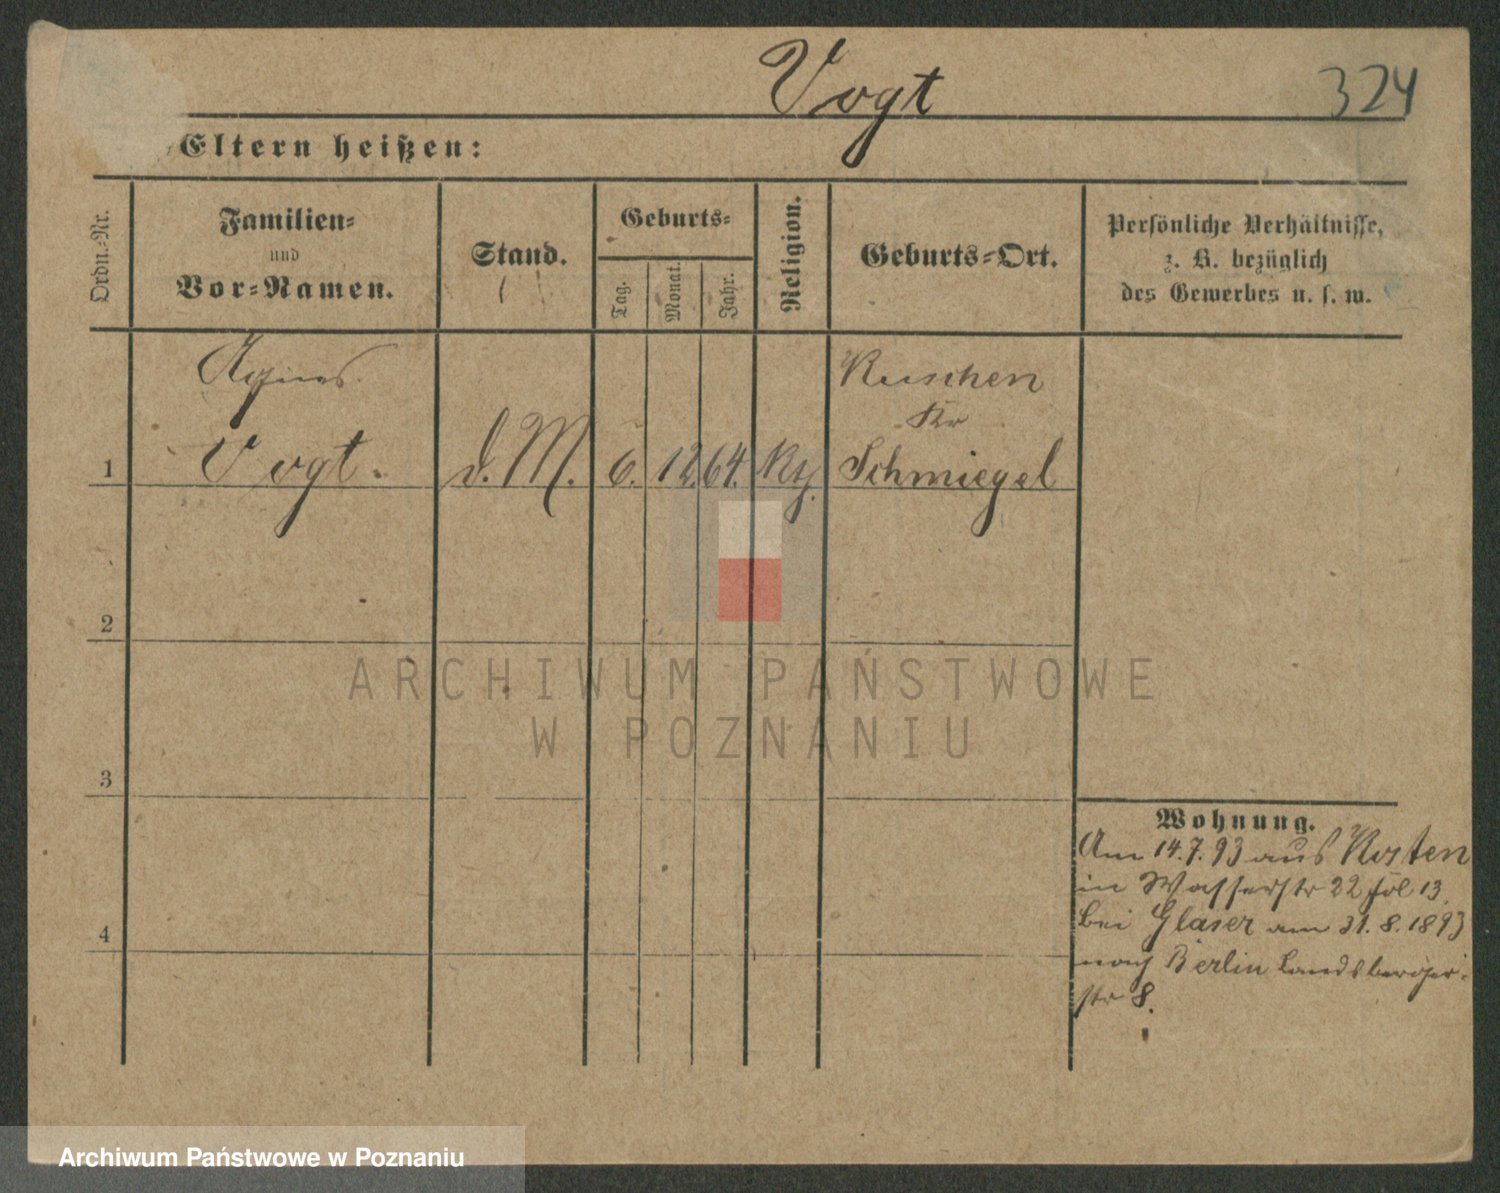 Vogt
324
Eltern heißen:
Ordn.-Nr.
Familien-
und
Vor-Namen.
Stand.
Geburts-
Tag.
Monat.
Jahr.
Religion.
Geburts-Ort.
Persönliche Verhältnisse,
z. B. bezüglich
des Gewerbes u. s. w.
Agnes
Vogt.
1
d. M.
6.
12.
64.
Ktz.
Kuschen
Kr
Schmiegel
2
3
4
Wohnung.
Am 14.7.93 aus Kosten
in Wasserstr 22 13.
bei Glaser am 31.8.1893
nach Berlin Landsberger-
str 8.
ARCHIWUM PAŃSTWOWE
W POZNANIU
Archiwum Państwowe w Poznaniu